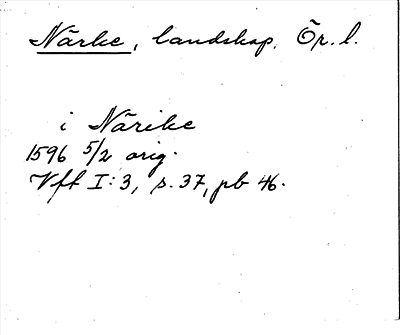 Närke, landskap. Ör. l.
i Närike
1596 5/2 orig.
Vft I:3, s. 37, pb 46.